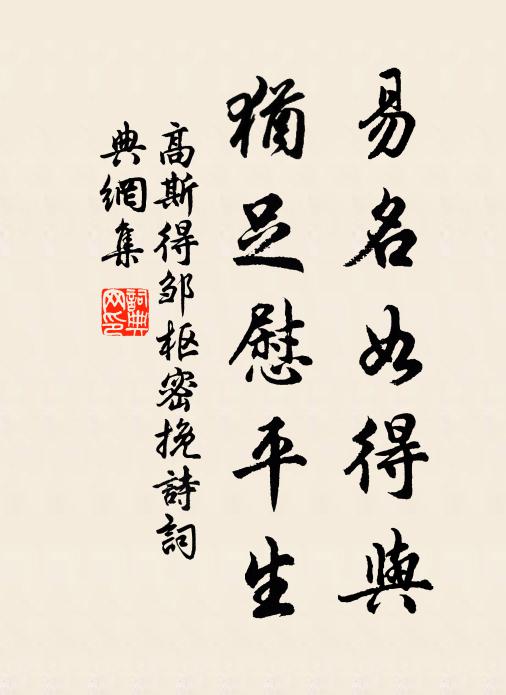 易名如得與
猶足慰平生
高斯得邹枢密挽詩詞
典網集
詞典
网印